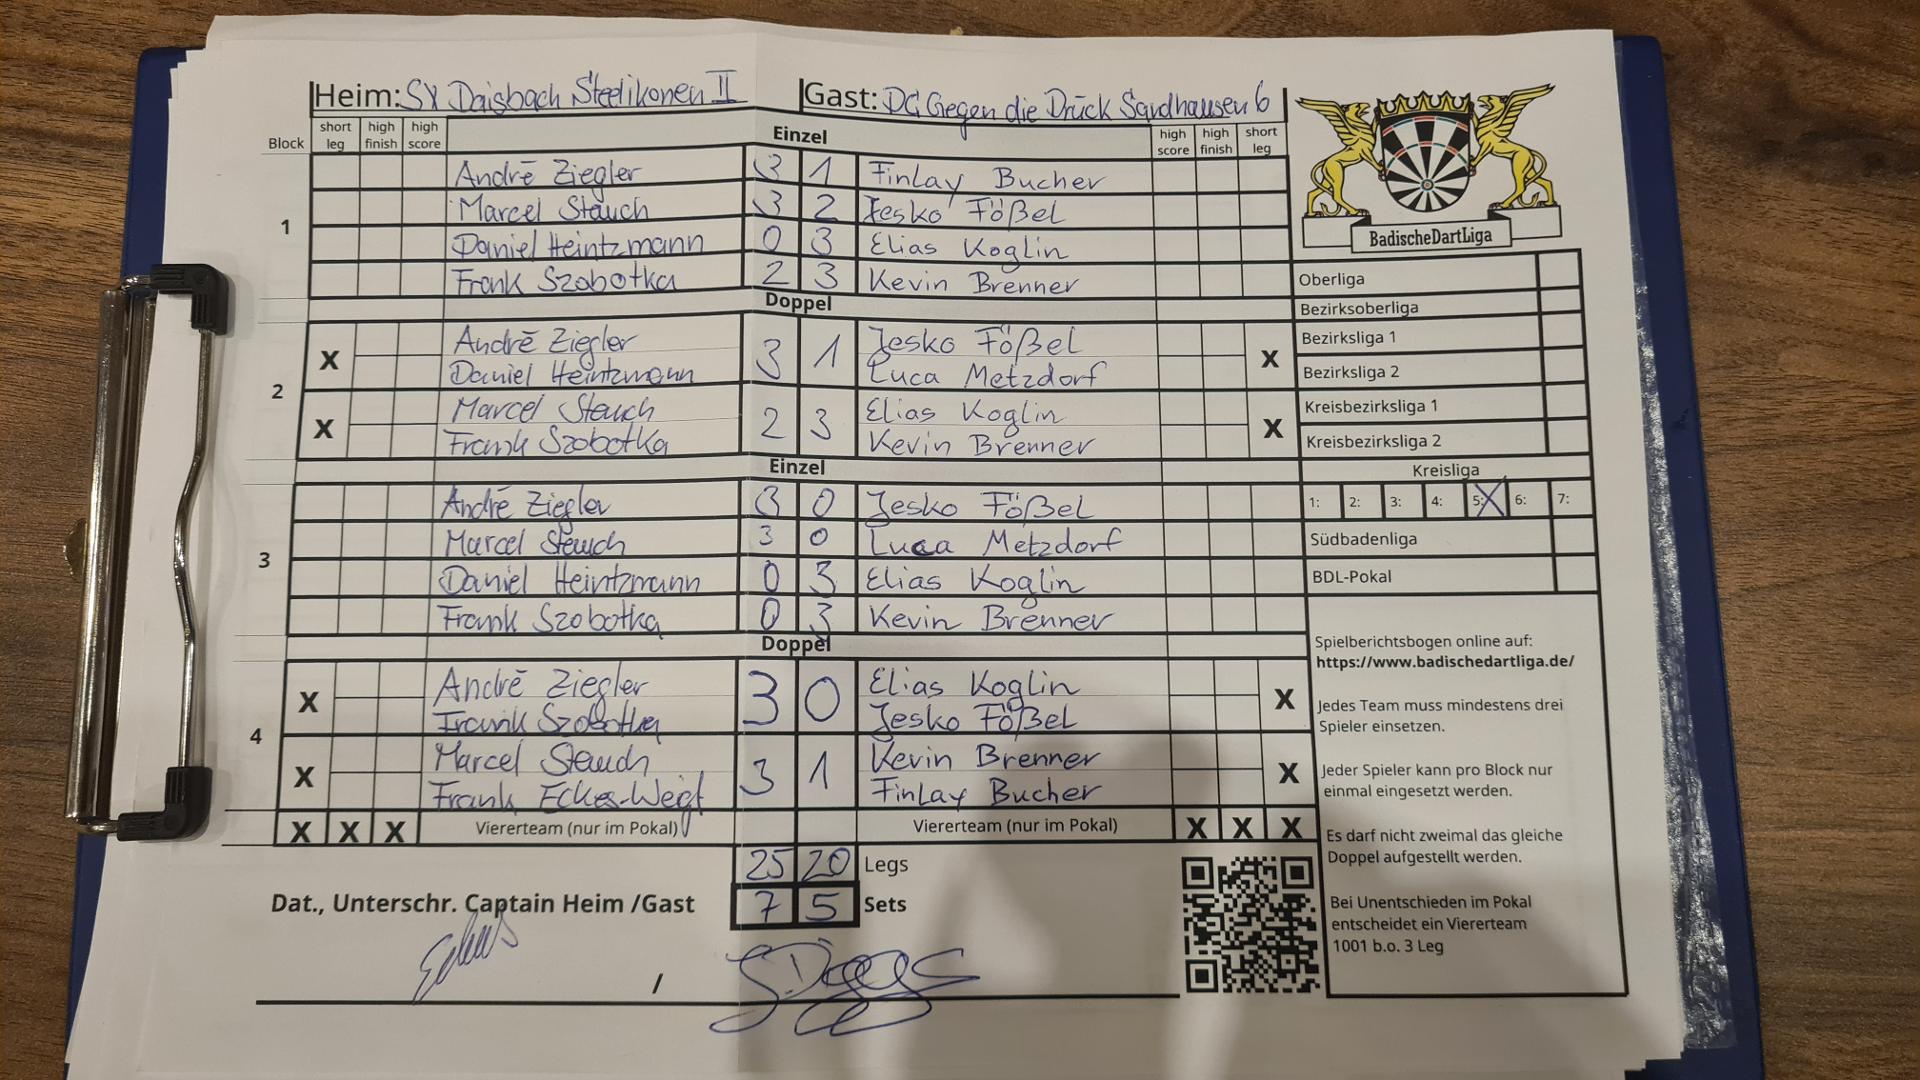 Heim: SV Daisbach Steelikonen II Gast: DC Gegen die Drück Sandhausen 6
Block short leg high finish high score Einzel high score high finish short leg
1
André Ziegler 3 1 Finlay Bucher
Marcel Stauch 3 2 Jesko Fößel
Daniel Heintzmann 0 3 Elias Koglin
Frank Szobotka 2 3 Kevin Brenner
Doppel
2
X André Ziegler 3 1 Jesko Fößel X
Daniel Heintzmann Luca Metzdorf
X Marcel Stauch 2 3 Elias Koglin X
Frank Szobotka Kevin Brenner
Einzel
3
André Ziegler 3 0 Jesko Fößel
Marcel Stauch 3 0 Luca Metzdorf
Daniel Heintzmann 0 3 Elias Koglin
Frank Szobotka 0 3 Kevin Brenner
Doppel
4
X André Ziegler 3 0 Elias Koglin X
Frank Szobotka Jesko Fößel
X Marcel Stauch 3 1 Kevin Brenner X
Frank Eckes-Weigt Finlay Bucher
X X X Viererteam (nur im Pokal) Viererteam (nur im Pokal) X X X
25 20 Legs
7 5 Sets
Dat., Unterschr. Captain Heim /Gast
/
BadischeDartLiga
Oberliga
Bezirksoberliga
Bezirksliga 1
Bezirksliga 2
Kreisbezirksliga 1
Kreisbezirksliga 2
Kreisliga
1: 2: 3: 4: 5: X 6: 7:
Südbadenliga
BDL-Pokal
Spielberichtsbogen online auf:
https://www.badischedartliga.de/
Jedes Team muss mindestens drei
Spieler einsetzen.
Jeder Spieler kann pro Block nur
einmal eingesetzt werden.
Es darf nicht zweimal das gleiche
Doppel aufgestellt werden.
Bei Unentschieden im Pokal
entscheidet ein Viererteam
1001 b.o. 3 Leg